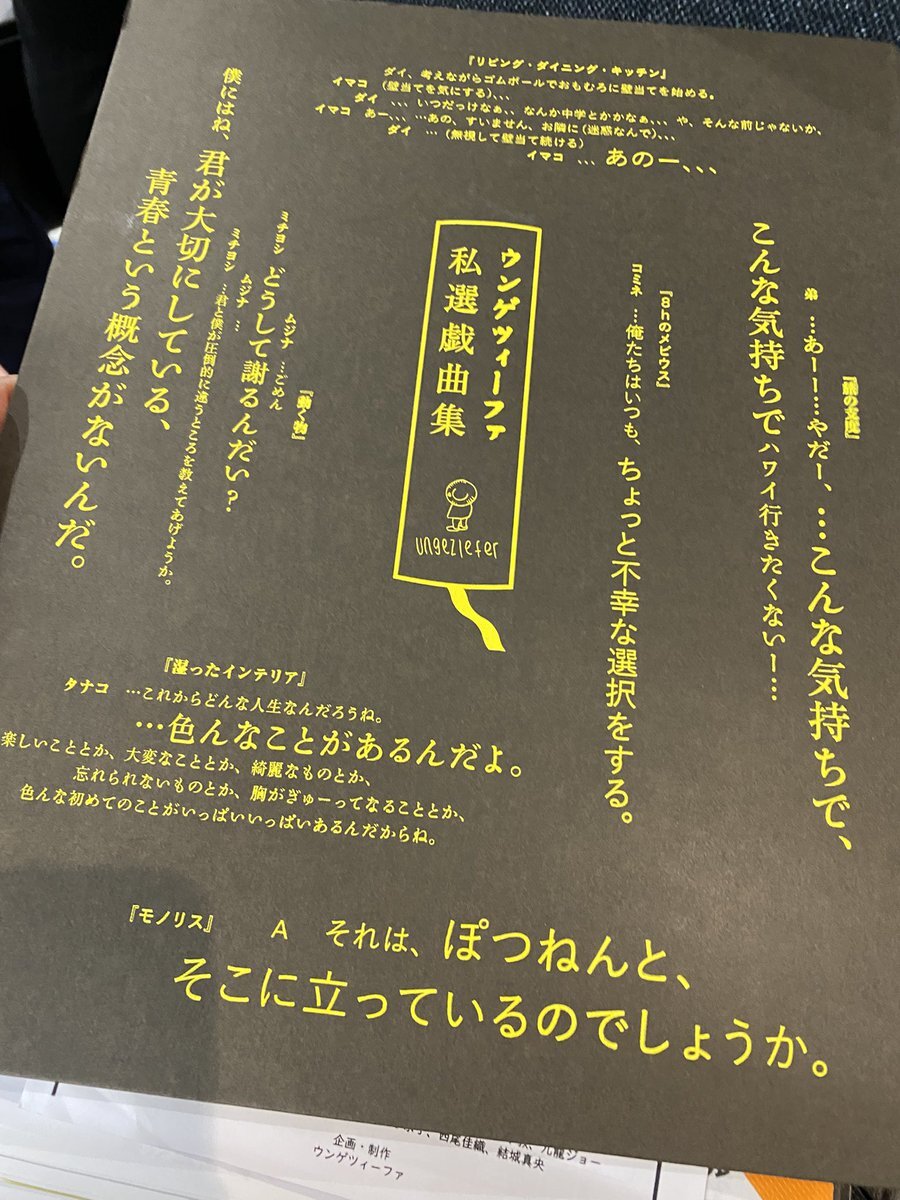 『リビング・ダイニング・キッチン』
ダイ、考えながらゴムボールでおもむろに壁当てを始める。
イマコ (壁当てを気にする)、、、
ダイ 、、、いつだっけなぁ、、なんか中学とかかなぁ、、、や、そんな前じゃないか、
イマコ あー、、、…あの、すいません、お隣に(迷惑なんで)、、、
ダイ … (無視して壁当て続ける)
イマコ 、、、あのー、、、
弟 …あーー…やだー、…こんな気持ちで、
こんな気持ちでハワイ行きたくないー…
『8hのメビウス』
コミネ …俺たちはいつも、ちょっと不幸な選択をする。
ウンゲツィーファ
私選戯曲集
ungeziefer
『動く物』
ムジナ …ごめん
ミチヨシ どうして謝るんだい?
ムジナ …
ミチヨシ …君と僕が圧倒的に違うところを教えてあげようか。
僕にはね、君が大切にしている、
青春という概念がないんだ。
『湿ったインテリア』
タナコ …これからどんな人生なんだろうね。
…色んなことがあるんだよ。
楽しいこととか、大変なこととか、綺麗なものとか、
忘れられないものとか、胸がぎゅーってなることとか、
色んな初めてのことがいっぱいいっぱいあるんだからね。
『モノリス』 A それは、ぽつねんと、
そこに立っているのでしょうか。
、四尾佳織、結城真央
九龍ジョー
企画・制作
ウンゲツィーファ